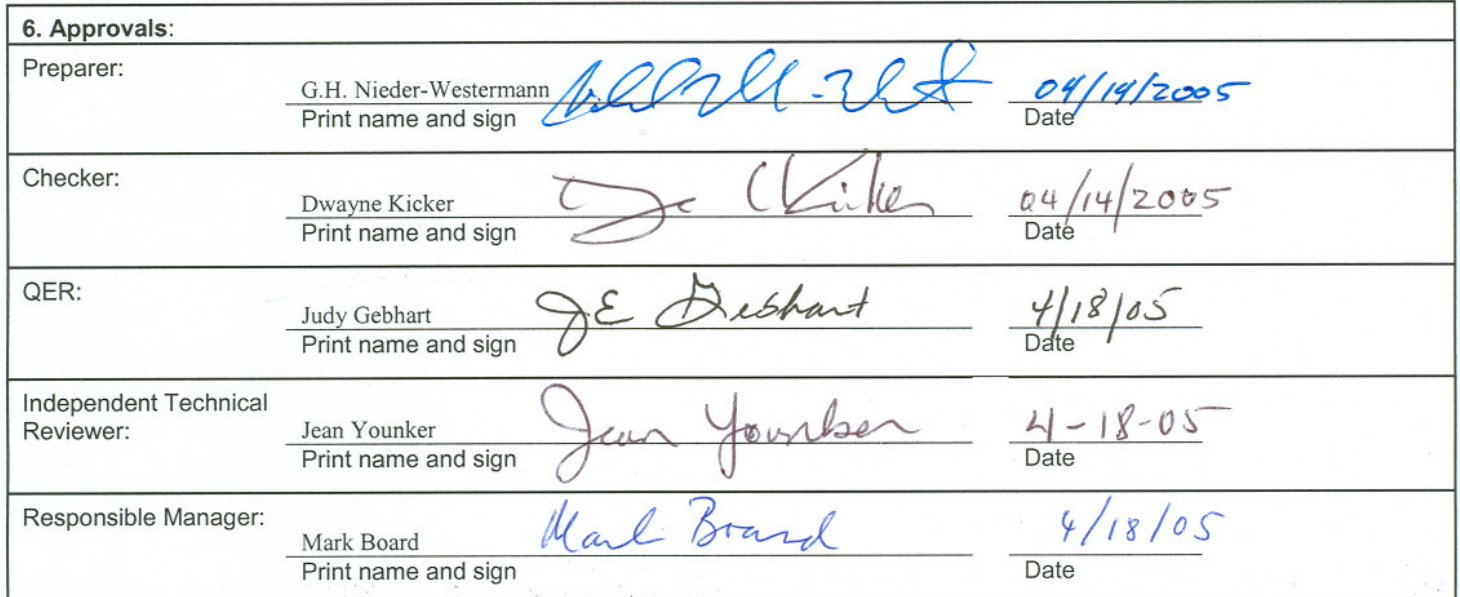 6. Approvals:
Preparer:
G.H. Nieder-Westermann 04/14/2005
Print name and sign Date
Checker:
Dwayne Kicker D C Kicker 04/14/2005
Print name and sign Date
QER:
Judy Gebhart JE Gebhart 4/18/05
Print name and sign Date
Independent Technical
Reviewer:
Jean Younker Jean Younker 4-18-05
Print name and sign Date
Responsible Manager:
Mark Board Mark Board 4/18/05
Print name and sign Date